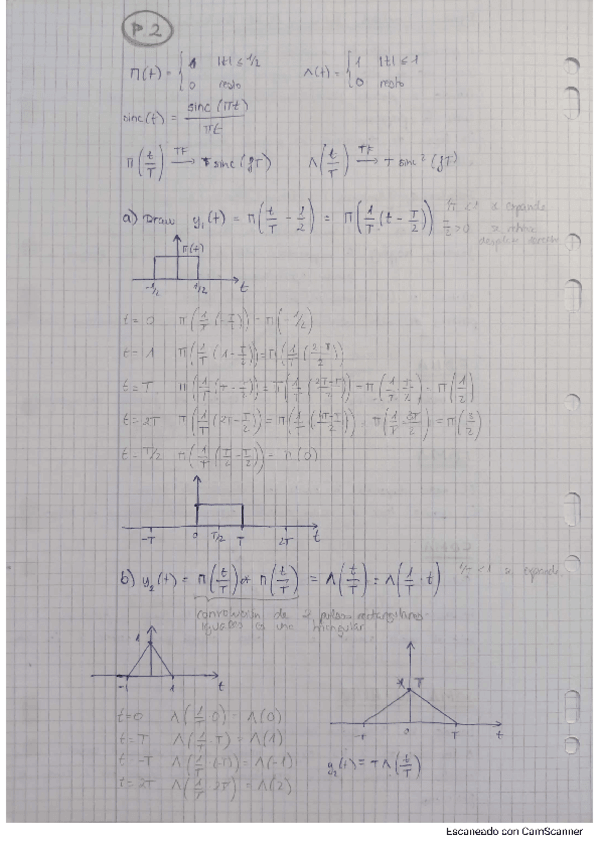 P.2
Π(t) = { 1 |t| ≤ 1/2
0 resto
Λ(t) = { 1 |t| ≤ 1
0 resto
sinc(t) = sinc(πt) / πt
Π(t/T) TF→ T sinc(fT)
Λ(t/T) TF→ T sinc²(fT)
a) Draw y₁(t) = Π(t/T - 1/2) = Π(1/T (t - T/2))
1/T < 1 se expande
Π(t)
-1/2 1/2 t
t = 0 Π(1/T (-T/2)) = Π(-1/2)
t = 1 Π(1/T (1 - T/2)) = Π(1/T (2-T/2))
t = T Π(1/T (T - T/2)) = Π(1/T (2T-T/2)) = Π(1/T · T/2) = Π(1/2)
t = 2T Π(1/T (2T - T/2)) = Π(1/T (4T-T/2)) = Π(1/T · 3T/2) = Π(3/2)
t = T/2 Π(1/T (T/2 - T/2)) = Π(0)
-T 0 T/2 T 2T t
b) y₂(t) = Π(t/T) * Π(t/T) = Λ(t/T) = Λ(1/T · t)
1/T < 1 se expande
convolución de 2 pulsos rectangulares
iguales es una triangular
1
-1 1 t
T
-T 0 T t
t=0 Λ(1/T · 0) = Λ(0)
t = T Λ(1/T · T) = Λ(1)
t = -T Λ(1/T (-T)) = Λ(-1)
t = 2T Λ(1/T 2T) = Λ(2)
y₂(t) = T Λ(t/T)
Escaneado con CamScanner